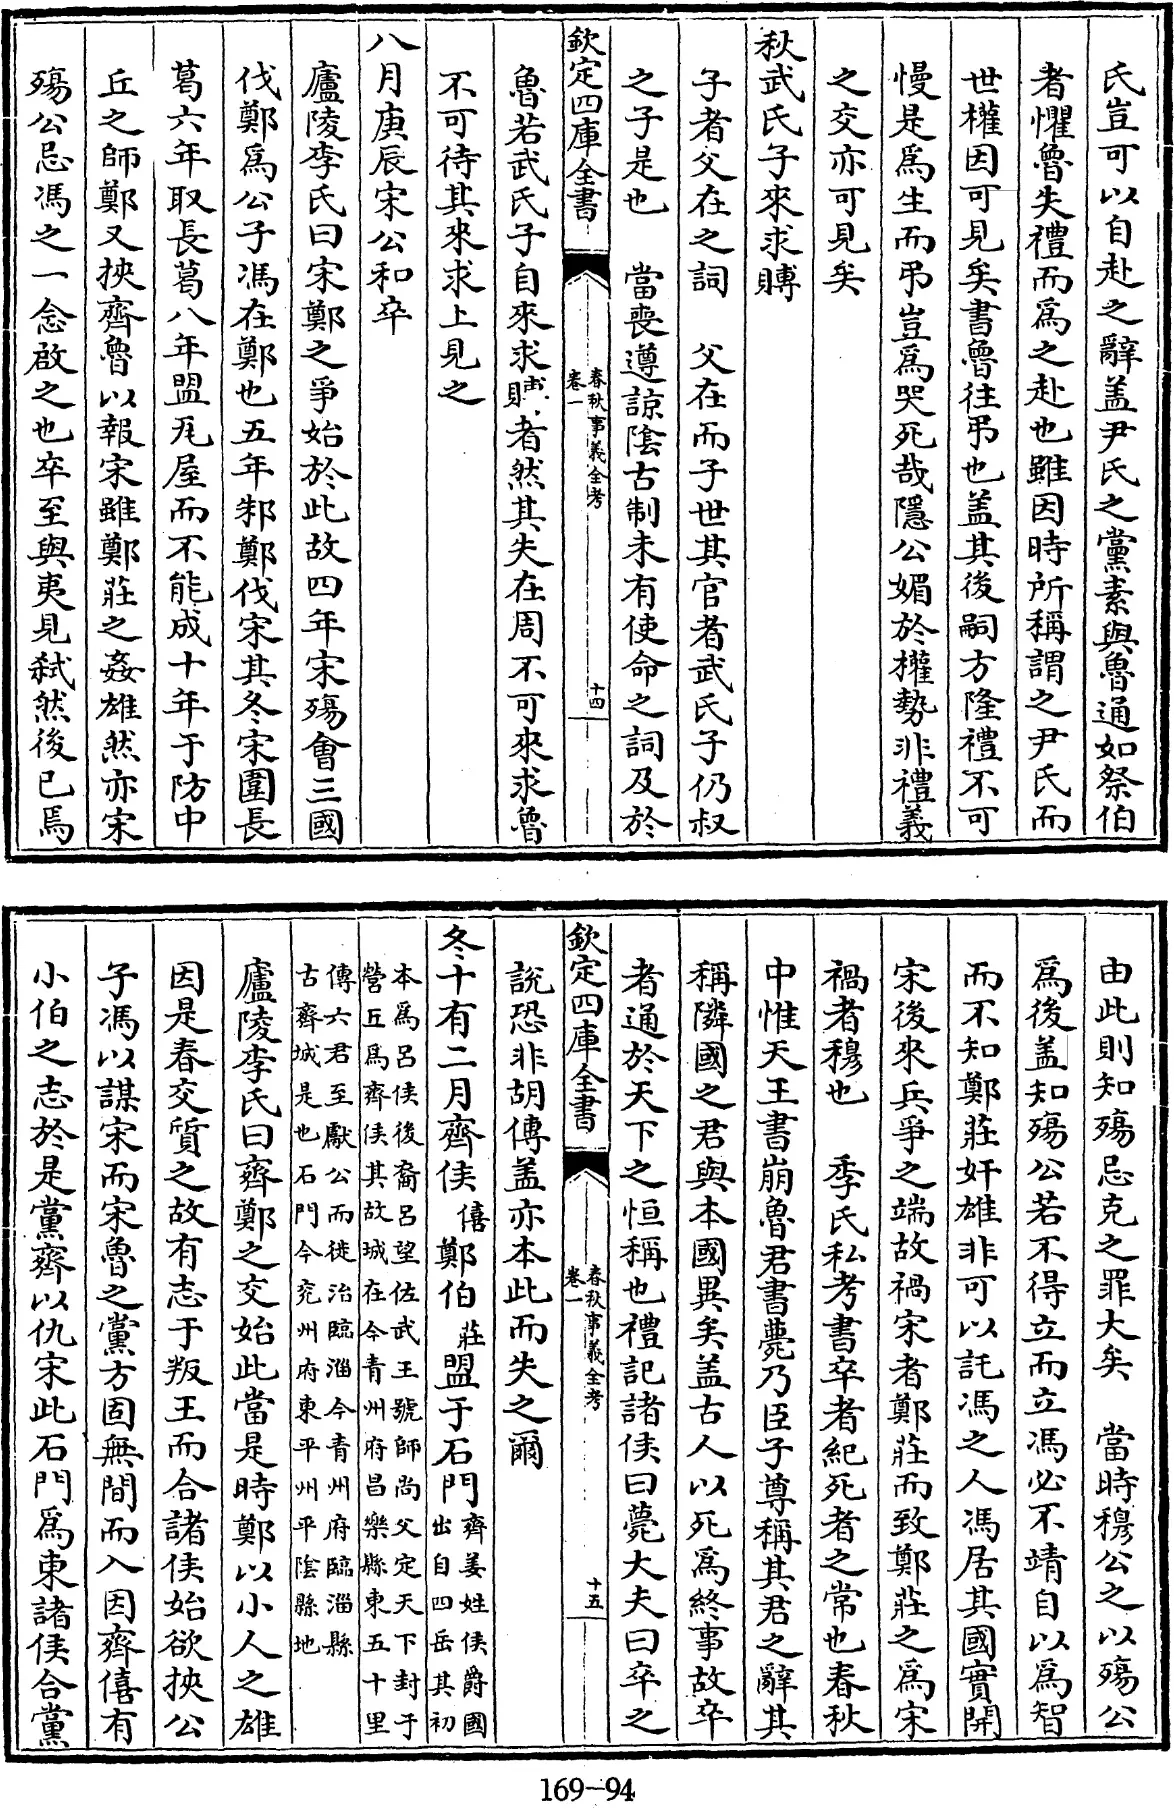 氏豈可以自赴之辭盖尹氏之黨素與魯通如祭伯
者懼魯失禮而爲之赴也雖因時所稱謂之尹氏而
世權因可見矣書魯往弔也盖其後嗣方隆禮不可
慢是爲生而弔豈爲哭死哉隱公媚於權勢非禮義
之交亦可見矣
秋武氏子來求賻
子者父在之詞　父在而子世其官者武氏子仍叔
之子是也　當喪遵諒陰古制未有使命之詞及於
欽定四庫全書
春秋事義全考
卷一
十四
魯若武氏子自來求賻者然其失在周不可來求魯
不可待其來求上見之
八月庚辰宋公和卒
廬陵李氏曰宋鄭之爭始於此故四年宋殤會三國
伐鄭爲公子馮在鄭也五年邾鄭伐宋其冬宋圍長
葛六年取長葛八年盟瓦屋而不能成十年于防中
丘之師鄭又挾齊魯以報宋雖鄭莊之姦雄然亦宋
殤公忌馮之一念啟之也卒至與夷見弒然後已焉
由此則知殤忌克之罪大矣　當時穆公之以殤公
爲後盖知殤公若不得立而立馮必不靖自以爲智
而不知鄭莊奸雄非可以託馮之人馮居其國實開
宋後來兵爭之端故禍宋者鄭莊而致鄭莊之爲宋
禍者穆也　季氏私考書卒者紀死者之常也春秋
中惟天王書崩魯君書薨乃臣子尊稱其君之辭其
稱隣國之君與本國異矣盖古人以死爲終事故卒
者通於天下之恒稱也禮記諸侯曰薨大夫曰卒之
欽定四庫全書
春秋事義全考
卷一
十五
說恐非胡傳盖亦本此而失之爾
冬十有二月齊侯僖鄭伯莊盟于石門齊姜姓侯爵國
出自四岳其初
本爲呂侯後裔呂望佐武王號師尚父定天下封于
營丘爲齊侯其故城在今青州府昌樂縣東五十里
傳六君至獻公而徙治臨淄今青州府臨淄縣
古齊城是也石門今兖州府東平州平陰縣地
廬陵李氏曰齊鄭之交始此當是時鄭以小人之雄
因是春交質之故有志于叛王而合諸侯始欲挾公
子馮以謀宋而宋魯之黨方固無間而入因齊僖有
小伯之志於是黨齊以仇宋此石門爲東諸侯合黨
169-94